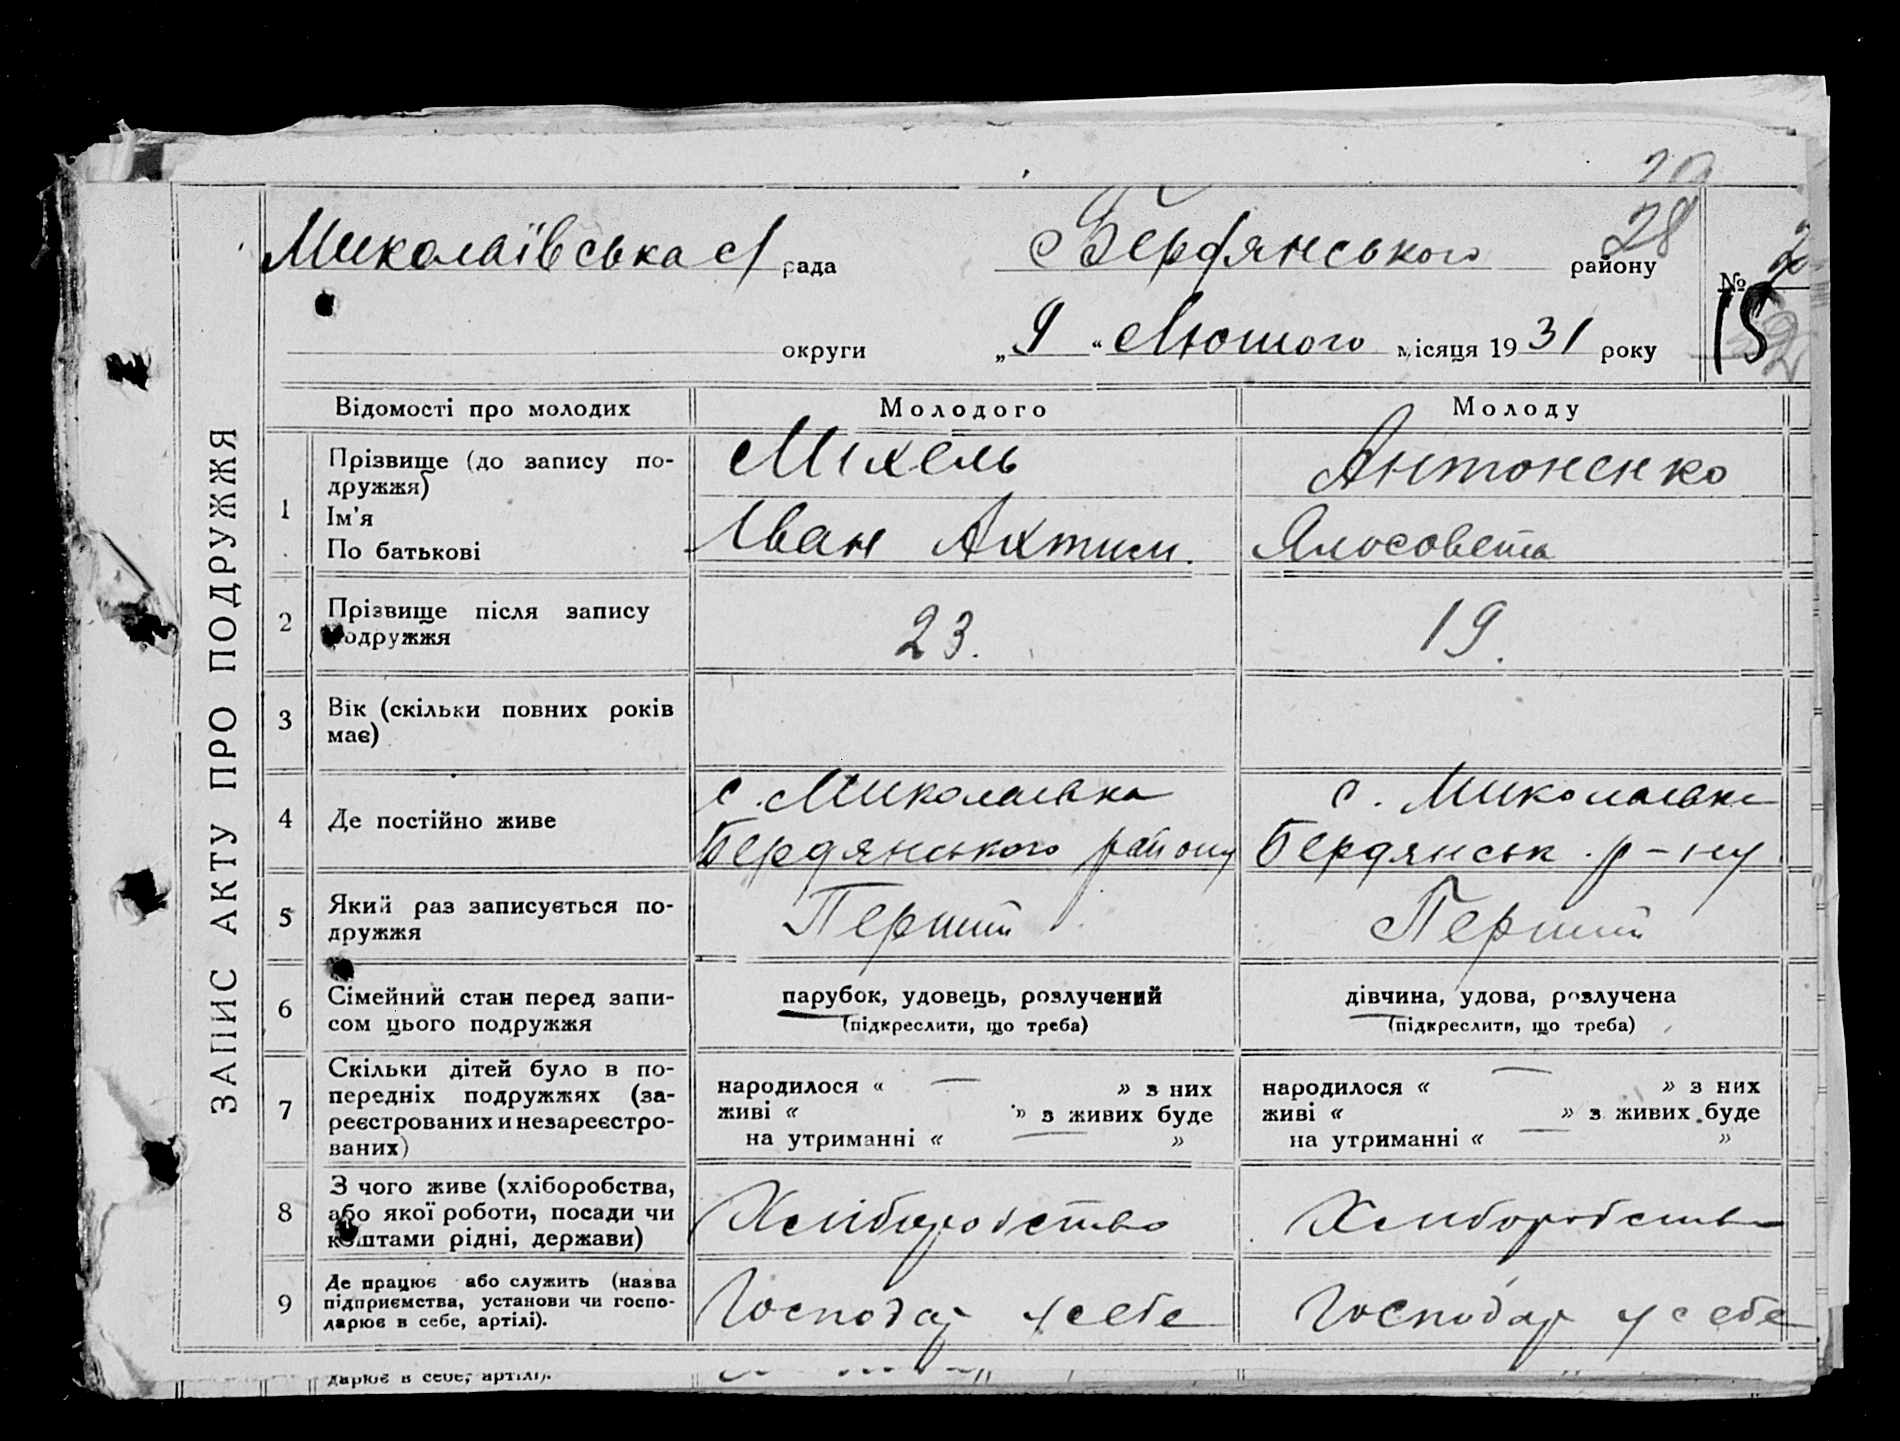 28
Миколаївська с/ рада Бердянського району №
округи „ 9 “ Лютого місяця 1931 року 15
ЗАПИС АКТУ ПРО ПОДРУЖЖЯ
Відомості про молодих Молодого Молоду
1 Прізвище (до запису по-
дружжя) Міхель Антоненко
Ім'я
По батькові Іван Ахтим. Ялосовета
2 Прізвище після запису
подружжя 23. 19.
3 Вік (скільки повних років
має)
4 Де постійно живе
с. Миколаївка с. Миколаївка
Бердянського району Бердянськ. р-ну
5 Який раз записується по-
дружжя Перший Перший
6 Сімейний стан перед запи-
сом цього подружжя
парубок, удовець, розлучений дівчина, удова, розлучена
(підкреслити, що треба) (підкреслити, що треба)
7 Скільки дітей було в по-
передніх подружжях (за-
реєстрованих и незареєстро-
ваних)
народилося « — » з них народилося « — » з них
живі « » з живих буде живі « » з живих буде
на утриманні « — » на утриманні « — »
8 З чого живе (хліборобства,
або якої роботи, посади чи
коштами рідні, держави)
Хліборобство Хлиборобство
9 Де працює або служить (назва
підприємства, установи чи госпо-
дарює в себе, артілі).
Господар у себе Господар у себе
дарює в себе, артілі).